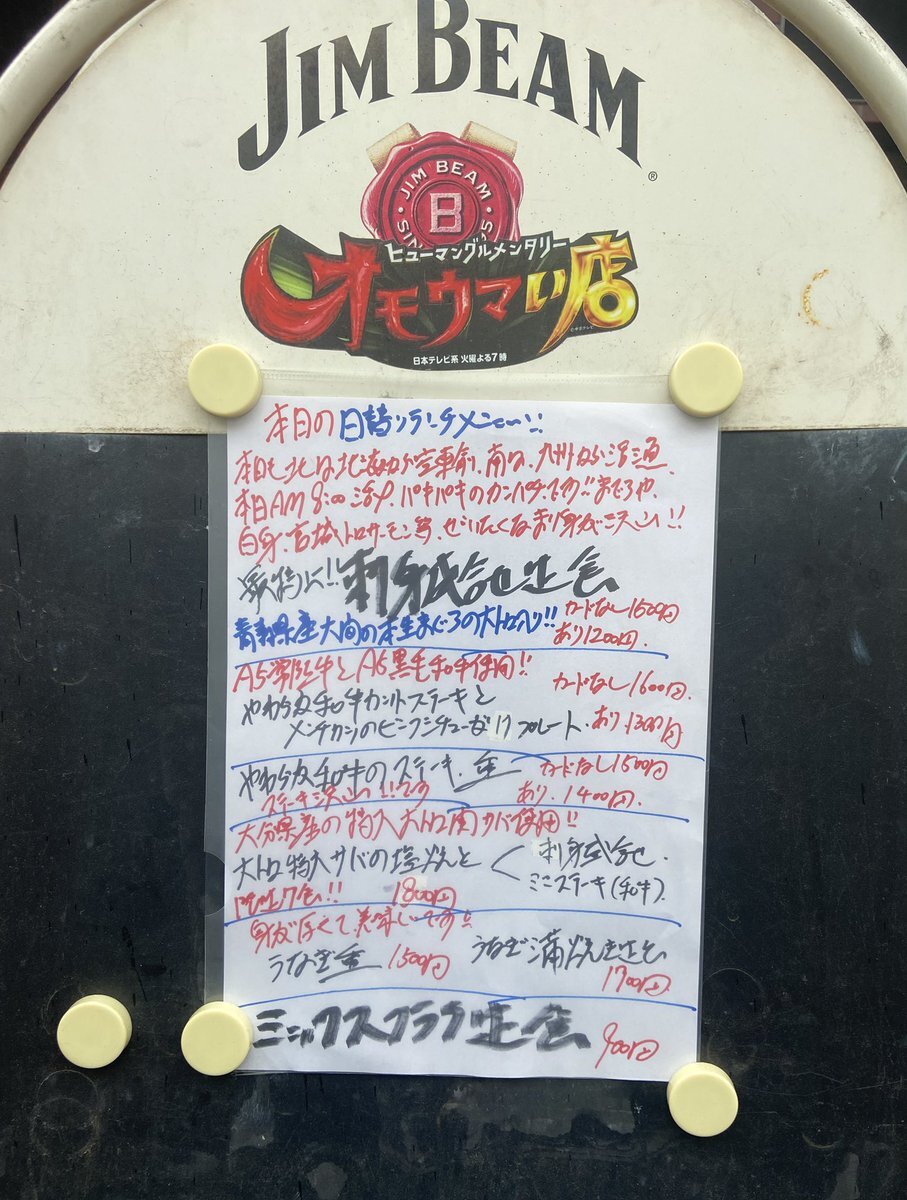 JIM BEAM
®
JIM BEAM
B
ヒューマングルメンタリー
オモウマい店
©中京テレビ
日本テレビ系 火曜よる7時
本日の日替りランチメニュー!!
本日も北は北海道から空車輸、南は、九州から
本日AM 8:00 活〆、パキパキのカンパチ
白身、宮城トロサーモン等、ぜいたくな刺身が沢山!!
刺身盛合せ定食
青森県産大間の本生まぐろの大トロ入り!!
カードなし1500円
あり1200円.
A5 牛とA5黒毛和牛使用!!
やわらか和牛カットステーキと
メンチカツのビーフシチューがけプレート.
カードなし1600円.
あり.1300円
やわらか和牛のステーキ重
カードなし1500円
ステーキ沢山!!です
あり.1400円.
大分県産の特大大トロ関サバ使用!!
大トロ特大サバの塩焼と
刺身盛合せ.
ミニステーキ(和牛)
定食!! 1800円
身が厚くて美味しいです!!
うなぎ重 1500円
うなぎ蒲焼き定食
1700円
ミックスフライ定食 900円